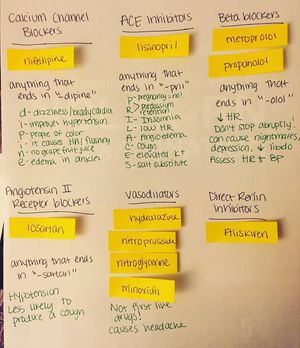 Calcium Channel
Blockers
nifedipine
anything that
ends in "-dipine"
d- dizziness/bradycardia
i- improves hypertension
p- people of color
i- it causes HA/flushing
n- no grapefruit juice
e- edema in ankles
ACE Inhibitors
lisinopril
anything that
ends in "-pril"
P- pregnancy-no!
R- Potassium
retention
I- Insomnia
L- low HR
A- Angioedema
C- Cough
E- elevated K+
S- salt substitute
Beta blockers
metoprolol
propanolol
anything that
ends in "-olol"
↓ HR
Don't stop abruptly!
can cause nightmares,
depression, ↓ libido
Assess HR & BP
Angiotensin II
Receptor blockers
losartan
anything that ends
in "-sartan"
Hypotension
Less likely to
produce a cough
Vasodilators
hydralazine
nitroprusside
nitroglycerine
minoxidil
Not first line
drugs!
causes headache
Direct Renin
Inhibitors
Aliskiren